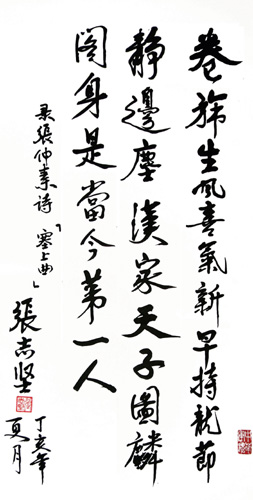 卷旆生风喜氣新早持龍節
靜邊塵漢家天子圖麟
閣身是當今第一人
录張仲素诗「塞上曲」
張志坚
丁亥年
夏月